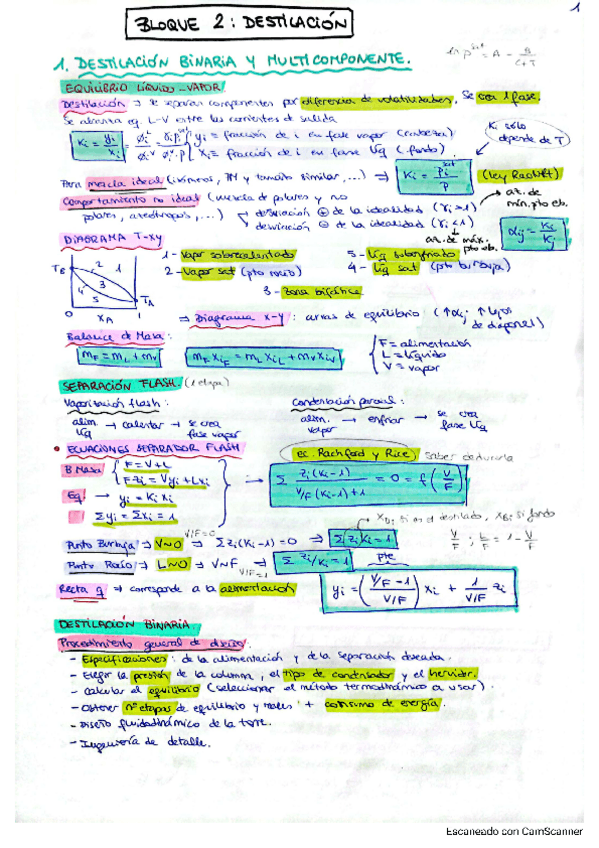 1
BLOQUE 2: DESTILACIÓN
1. DESTILACIÓN BINARIA Y MULTICOMPONENTE.
ln p^sat = A - B/(C+T)
EQUILIBRIO LÍQUIDO-VAPOR
Destilación → se separan componentes por diferencias de volatilidades. Se crea 1 fase.
Se alcanza eq. L-V entre las corrientes de salida
Ki = yi/xi
yi = fracción de i en fase vapor (cabeza)
xi = fracción de i en fase líq (fondo)
Ki sólo depende de T
Para mezcla ideal (isómeros, PM y tamaño similar, ...) ⇒ Ki = Pi^sat/P (Ley Raoult)
Comportamiento no ideal (mezcla de polares y no
polares, azeótropos, ...)
desviación ⊕ de la idealidad (γi > 1) → az. de mín. pto eb.
desviación ⊖ de la idealidad (γi < 1)
az. de máx. pto eb.
αij = Ki/Kj
DIAGRAMA T-xy
TB
TA
0 xA 1
1 2 3 4 5
1 - Vapor sobrecalentado
2 - Vapor sat (pto rocío)
3 - Zona bifásica
4 - Líq sat (pto burbuja)
5 - Líq subenfriado
⇒ Diagrama x-y: curvas de equilibrio
Balance de Masa:
mF = mL + mV
mF xiF = mL xiL + mV xiV
F = alimentación
L = líquido
V = vapor
SEPARACIÓN FLASH. (1 etapa)
Vaporización flash:
alim. líq → calentar → se crea fase vapor
Condensación parcial:
alim. vapor → enfriar → se crea fase líq
• ECUACIONES SEPARADOR FLASH
Ec. Rachford y Rice
Saber deducirla
B Masa
F = V + L
F·zi = Vyi + Lxi
Eq → yi = Ki xi
Σyi = Σxi = 1
→ Σ zi (Ki-1) / (V/F (Ki-1)+1) = 0 = f(V/F)
xD,i si es el destilado, xB,i si fondo
V/F ; L/F = 1 - V/F
Punto Burbuja → V~0 → V/F=0 Σzi(Ki-1)=0 → Σzi Ki = 1
Punto Rocío → L~0 → V~F V/F=1 ⇒ Σ zi/Ki = 1
Recta q ⇒ corresponde a la alimentación
pte
yi = ((V/F - 1)/(V/F)) xi + 1/(V/F) zi
DESTILACIÓN BINARIA.
Procedimiento general de diseño:
- Especificaciones: de la alimentación y de la separación deseada.
- Elegir la presión de la columna, el tipo de condensador y el hervidor.
- Calcular el equilibrio (seleccionar el método termodinámico a usar).
- Obtener nº etapas de equilibrio y reales + consumo de energía.
- Diseño fluidodinámico de la torre.
- Ingeniería de detalle.
Escaneado con CamScanner